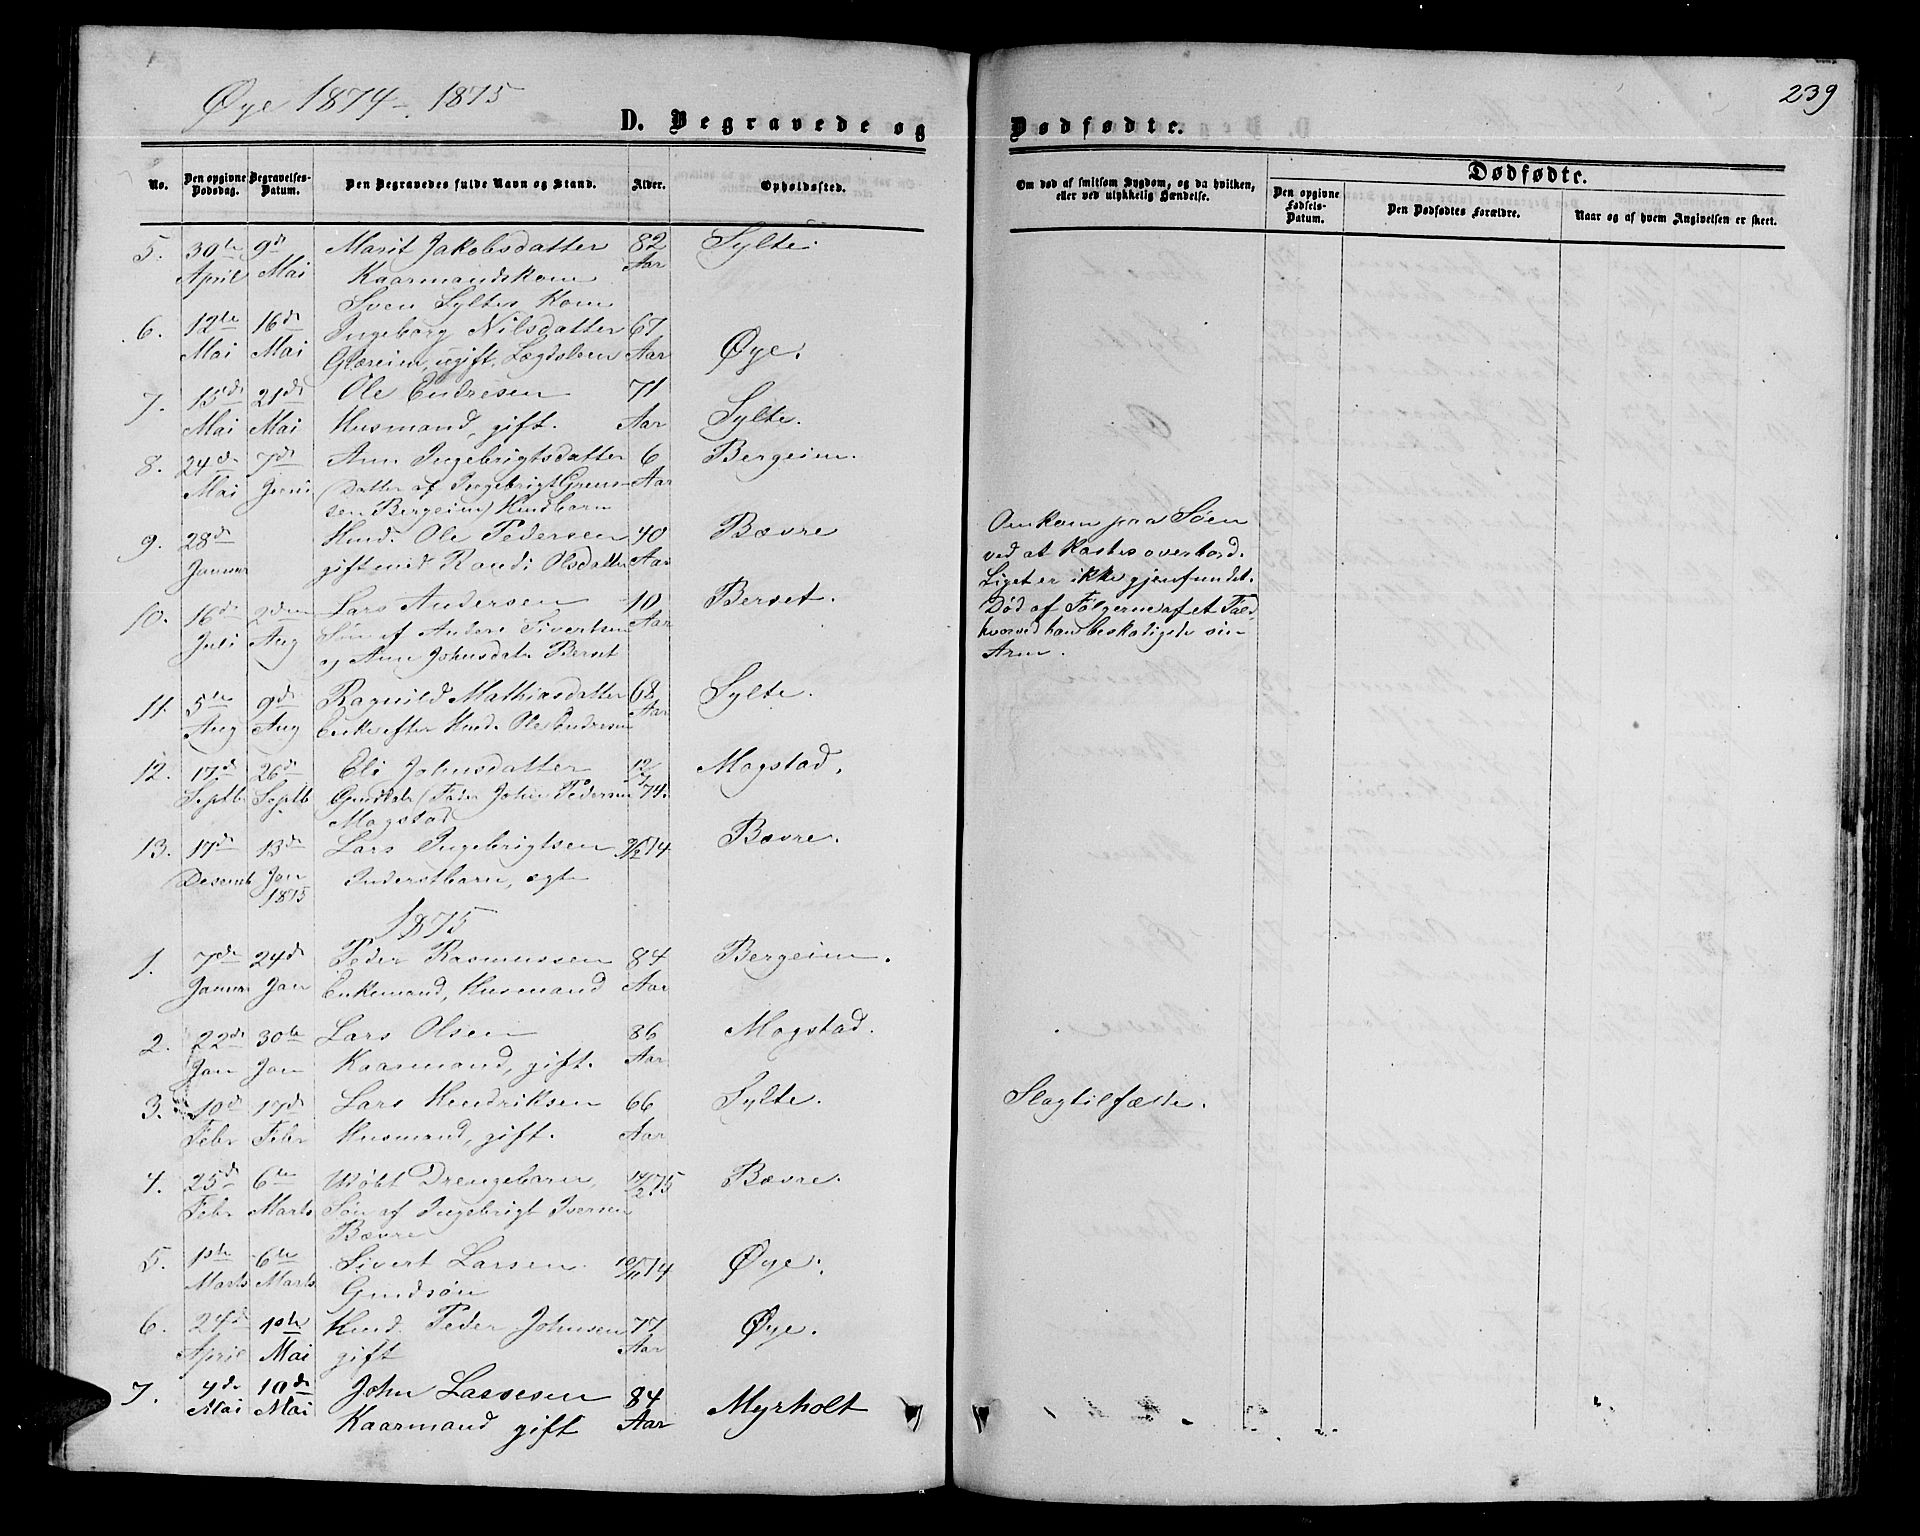 Øye 1874 - 1875
239
D. Begravede og
Dødfødte.
No.
Den opgivne Dødsdag.
Begravelses-Datum.
Den Begravedes fulde Navn og Stand.
Alder.
Opholdssted.
Om død af smitsom Sygdom, og da hvilken, eller ved ulykkelig Hændelse.
Dødfødte.
Den opgivne Fødsels-Datum.
Den Dødfødtes Forældre.
Naar og af hvem Angivelsen er skeet.
5. 30te 9de Marit Jakobsdatter 82 Sylte.
April Mai Kaarmandskone Aar
Sven Syltes Kone
6. 12te 16de Ingeborg Nilsdatter 67
Mai Mai ugift, Aar Øye.
7. 15de 21de Ole Endresen 71
Mai Mai Husmand, gift. Aar Sylte.
8. 24de 7de Ane Ingebrigtsdatter 6 Bergeim.
Mai Juni (Datter af Ingebrigt Aar
sen Bergeim) Husdbarn
9. 28de Husd. Ole Pedersen 40 Bævre
Januar gift med Randi Olsdatter Aar
Omkom paa Søen
ved at kastes overbord.
Liget er ikke gjenfundet.
10. 16de 2den Lars Andersen 10 Berset.
Juli Aug Søn af Anders Sivertsen Aar
og Ane Johnsdatr Berset
Død af Følgerne af et Fald,
hvorved han beskadigede sin
Arm.
11. 5te 9de Ragnild Mathiasdatter 68 Sylte.
Aug Aug Enke efter Husd. Ole Endresen Aar
12. 17de 26de Eli Johnsdatter 12/7 74. Magstad.
Septb Septb Gmdtatr (Fader John Pedersen
Magstad
13. 17de 13de Lars Ingebrigtsen 9/12 74 Bævre.
Desemb Jan Inderstbarn, ægte
1875
1875
1. 7de 24de Peder Rasmussen 84 Bergeim.
Januar Jan Enkemand, Husmand Aar
2. 22de 30te Lars Olsen 86 Magstad.
Jan Jan Kaarmand, gift. Aar
3. 10de 17de Lars Hendriksen 66 Sylte. Slagtilfælde.
Febr Febr Husmand, gift. Aar
4. 25de 6te Udøbt Drengebarn, 14/2 75 Bævre.
Febr Marts Søn af Ingebrigt Iversen
Bævre
5. 1ste 6te Sivert Larsen. 10/11 74 Øye.
Marts Marts Gmdsøn
6. 24de 1ste Husd. Peder Johnsen 77 Øye.
April Mai gift Aar
7. 4de 10de John Lassesen 84 Myrholt
Mai Mai Kaarmand gift Aar